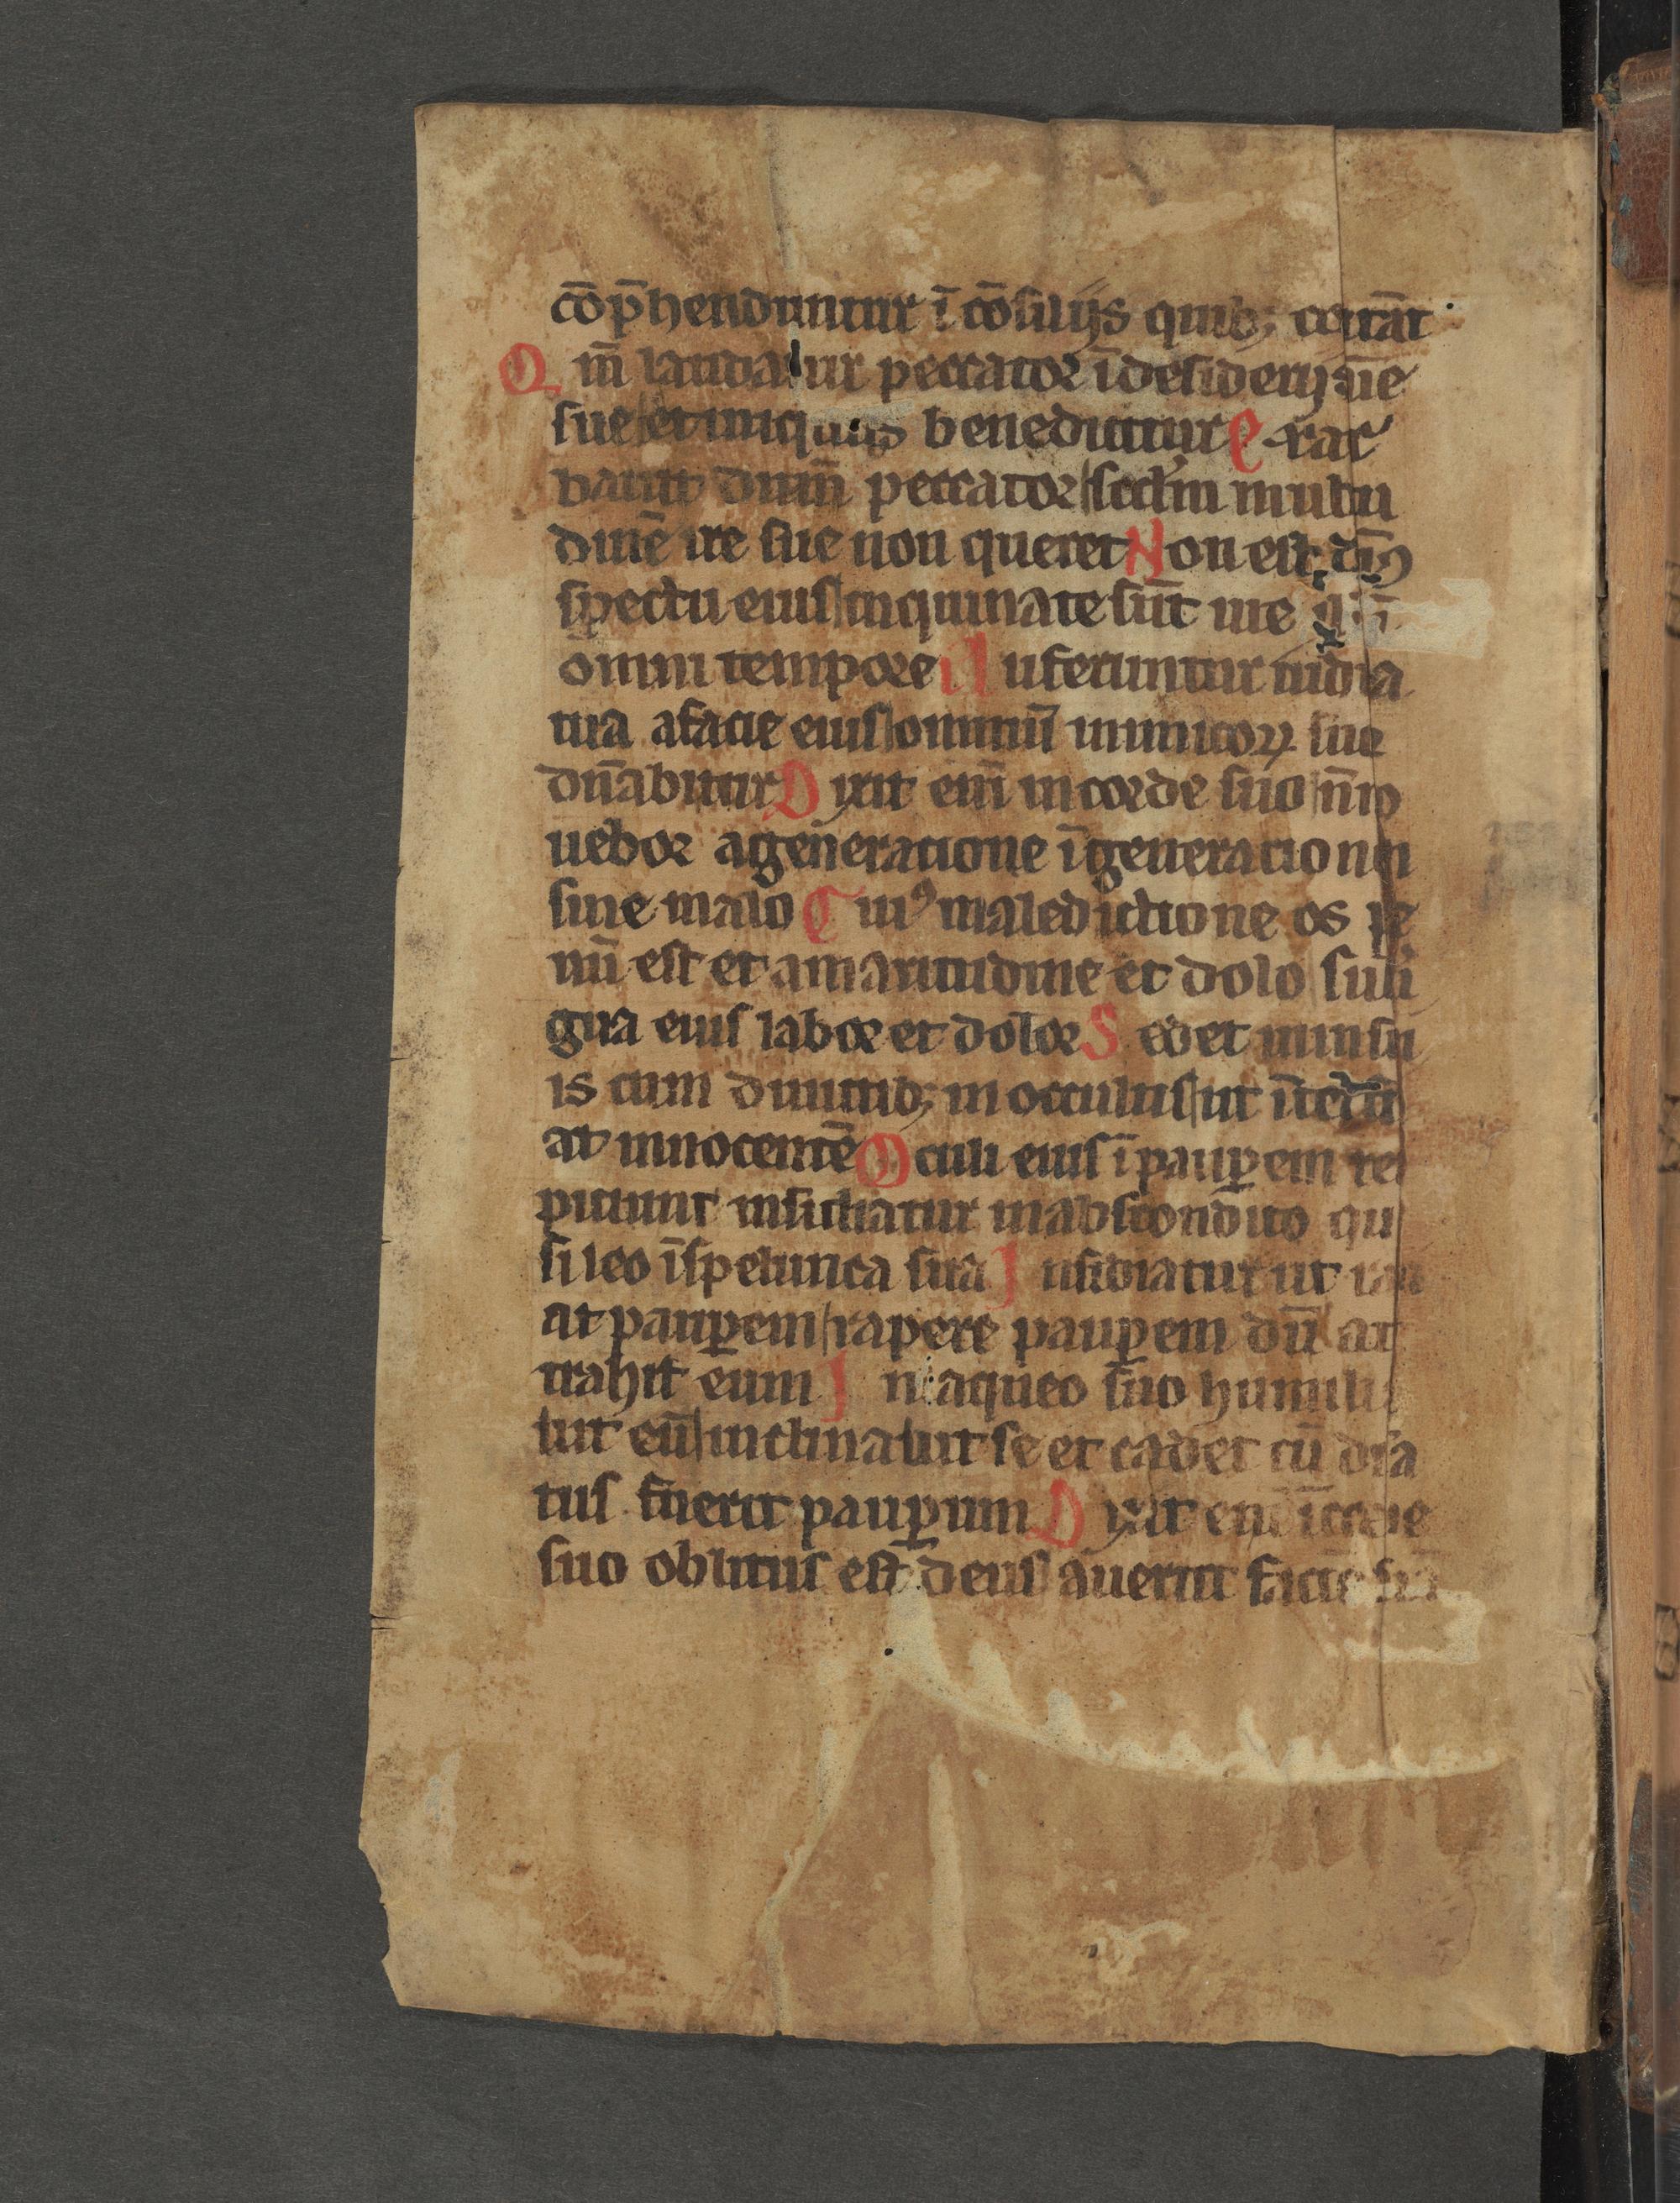 cōp̄henduntur ī cōsilijs quib; cogitāt
Qm̄ laudatur peccator ī desiderijs aīe
sue et iniquus benedicitur Exac
bauit dnm̄ peccator scdm multitu
dinē ire sue non queret Non est ds̄
spectu eius inquinate sūt uie
ōmni tempore Auferuntur iudia
tua a facie eius omniū inimicoꝝ sue
dn̄abitur Dixit eni̅ in corde suo n̄ mo
uebor a generacione ī generacionem
sine malo Cuiꝰ maledictione os ple
nū est et amaritudine et dolo sub li
gua eius labor et dolor Sedet in insi
is cum diuitib; in occultis ut īterfici
at innocentē Oculi eius ī paup̱em re
piciunt insidiatur in abscondito qu
si leo ī spelunca sua Insidiatur ut rapi
at paup̱em rapere paup̱em dū at
trahit eum In laqueo suo humilia
bit eū inclinabit se et cadet cū dn̄a
tus fuerit paup̱um Dixit eni̅ ī corde
suo oblitus est deus auertit faciē suā